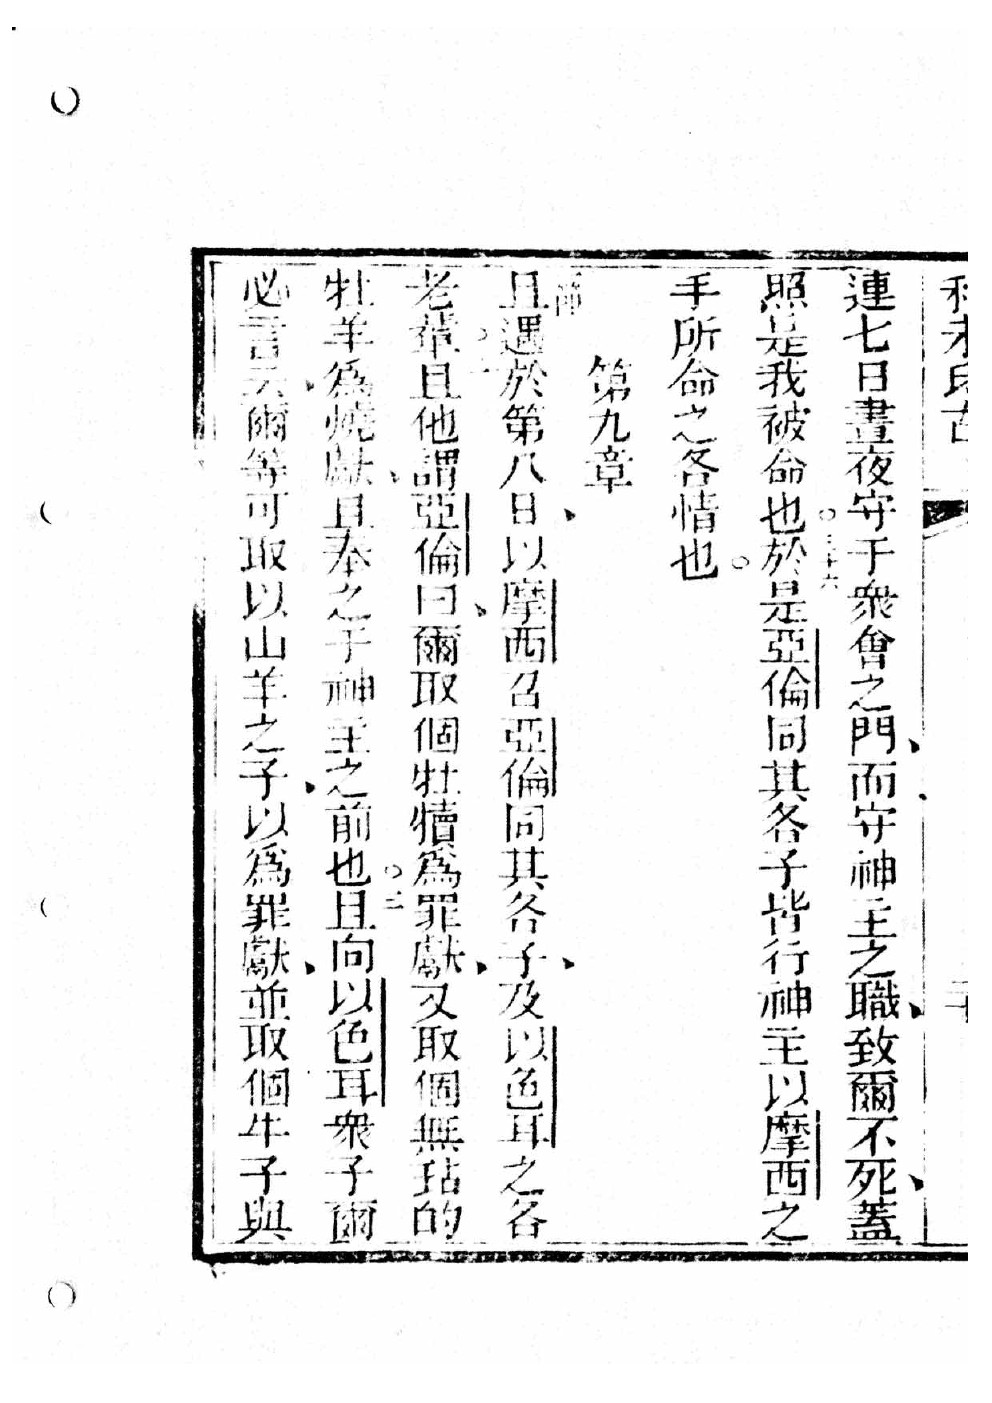 連七日晝夜守于衆會之門、而守神主之職、致爾不死、蓋
照是我被命也○三十六於是亞倫同其各子皆行神主以摩西之
手所命之各情也○
第九章
節
且遇於第八日、以摩西召亞倫同其各子、及以色耳之各
老輩○二且他謂亞倫曰、爾取個牡犢爲罪獻、又取個無玷的
牡羊爲燒獻、且奉之于神主之前也○三且向以色耳衆子爾
必言云、爾等可取以山羊之子、以爲罪獻、並取個牛子與